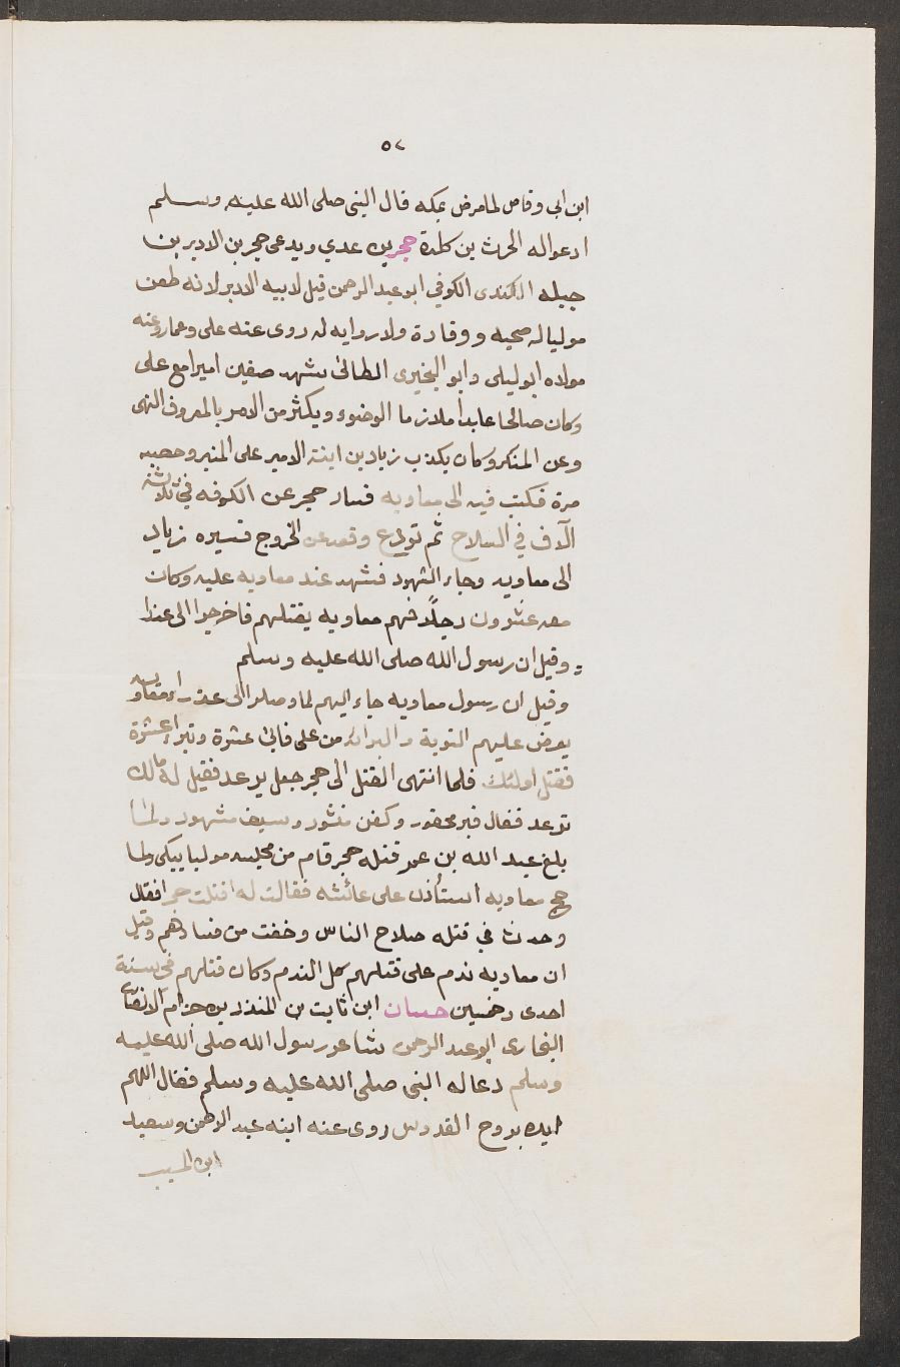 ٥٧
ابن ابى وقاص لما مرض بمكه قال النبى صلى الله عليه وسلم
ادعوا له الحرث بن كلدة حجر بن عدي ويدعى حجر بن الادبر بن
جبله الكندى الكوفي ابو عبد الرحمن قيل لابيه الادبر لانه طعن
موليا له صحبه ووفادة ولا روايه له روى عنه على وعمار وعنه
مولاه ابو ليلى وابو البخيرى الطائى شهد صفين اميرا مع على
وكان صالحا عابدا ملازما الوضوء ويكثر من الامر بالمعروف النهى
وعن المنكر وكان يكذب زياد بن ابنة الامير على المنبر وحصبه
مرة فكتب فيه الى معاويه فسار حجر عن الكوفه في ثلاثة
آلاف في السلاح ثم تورع وقعد عن الخروج فسيره زياد
الى معاويه وجاء الشهود فشهد عند معاويه عليه وكان
معه عشرون رجلاً فهم معاويه بقتلهم فاخرجوا الى عذرا
وقيل ان رسول الله صلى الله عليه وسلم
وقيل ان رسول معاويه جاء اليهم لما وصلوا الى عذراء
يعرض عليهم التوبة والبراءة من على فابى عشرة وتبراء عشرة
فقتل اولئك فلما انتهى القتل الى حجر جعل يرعد فقيل له مالك
ترعد فقال قبر محفور وكفن منشور وسيف مشهور ولما
بلغ عبد الله بن عمر قتله حجر قام من مجلسه موليا يبكى ولما
حج معاويه استأذن على عائشه فقالت له اقتلت حجرا فقال
وحدث في قتله صلاح الناس وخفت من فسادهم وقيل
ان معاويه ندم على قتلهم كل الندم وكان قتلهم في سنة
احدى وخمسين حسان ابن ثابت بن المنذر بن حزام الانصارى
النجارى ابو عبد الرحمن شاعر رسول الله صلى الله عليه
وسلم دعا له النبى صلى الله عليه وسلم فقال اللهم
ايده بروح القدوس روى عنه ابنه عبد الرحمن وسعيد
ابن المسيب